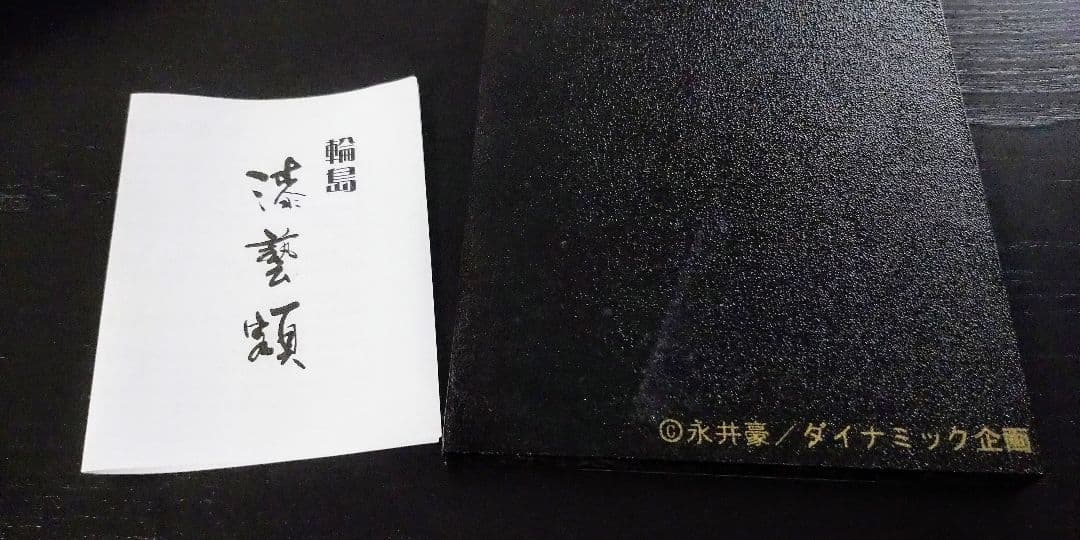 輪島
漆藝額
©永井豪/ダイナミック企画